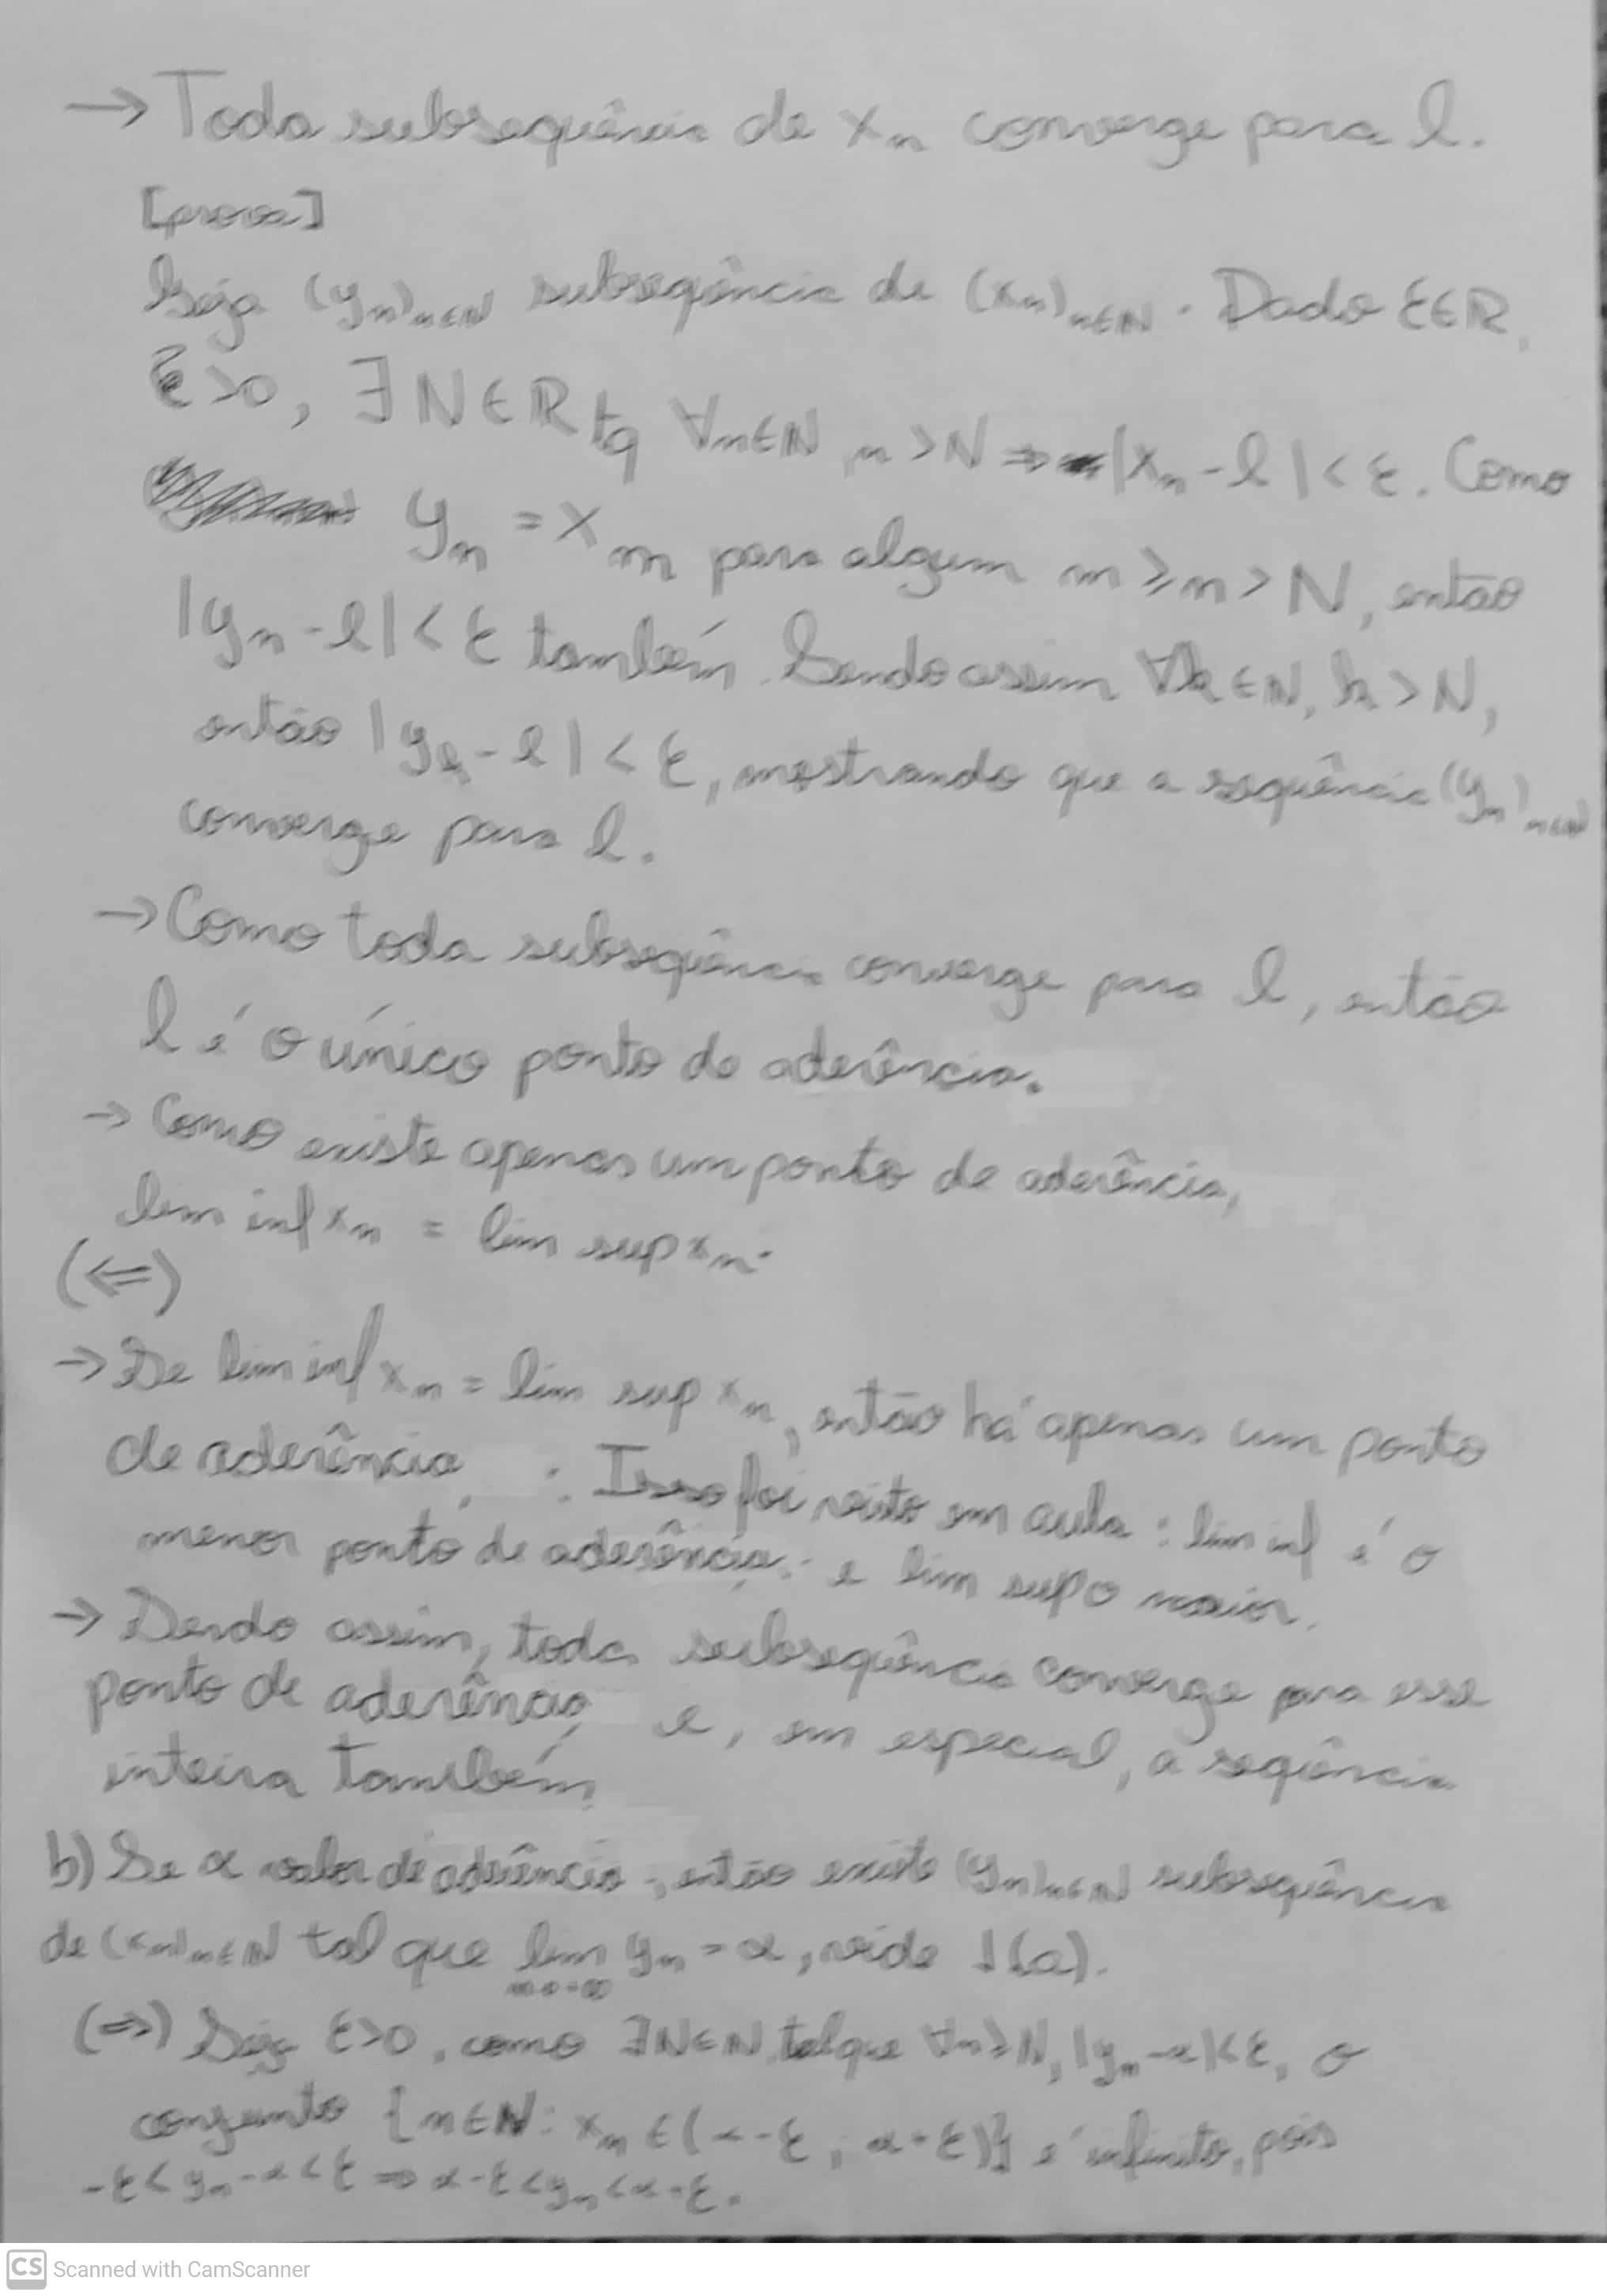 → Toda subsequência de xₙ converge para l.
[prova]
Seja (yₙ)ₙ∈ℕ subseqência de (xₙ)ₙ∈ℕ. Dado ε∈ℝ,
ε>0, ∃N∈ℝ tq ∀n∈ℕ, n>N ⇒ |xₙ-l|<ε. Como
yₙ = xₘ para algum m≥n>N, então
|yₙ-l|<ε também. Sendo assim ∀k∈ℕ, k>N,
então |yₖ-l|<ε, mostrando que a sequência (yₙ)ₙ∈ℕ
converge para l.
→ Como toda subseqência converge para l, então
l é o único ponto de aderência.
→ Como existe apenas um ponto de aderência,
lim inf xₙ = lim sup xₙ.
(⇐)
→ Se lim inf xₙ = lim sup xₙ, então há apenas um ponto
de aderência. : Isso foi visto em aula: lim inf é o
menor ponto de aderência e lim sup o maior.
→ Sendo assim, toda subseqência converge para esse
ponto de aderência, e, em especial, a seqência
inteira também.
b) Se α valor de aderência, então existe (yₙ)ₙ∈ℕ subsequência
de (xₙ)ₙ∈ℕ tal que lim yₙ = α, vide 1(a).
n→∞
(⇒) Seja ε>0, como ∃N∈ℕ tal que ∀n≥N, |yₙ-α|<ε, o
conjunto {n∈ℕ: xₙ∈(α-ε, α+ε)} é infinito, pois
-ε<yₙ-α<ε ⇒ α-ε<yₙ<α+ε.
CS Scanned with CamScanner